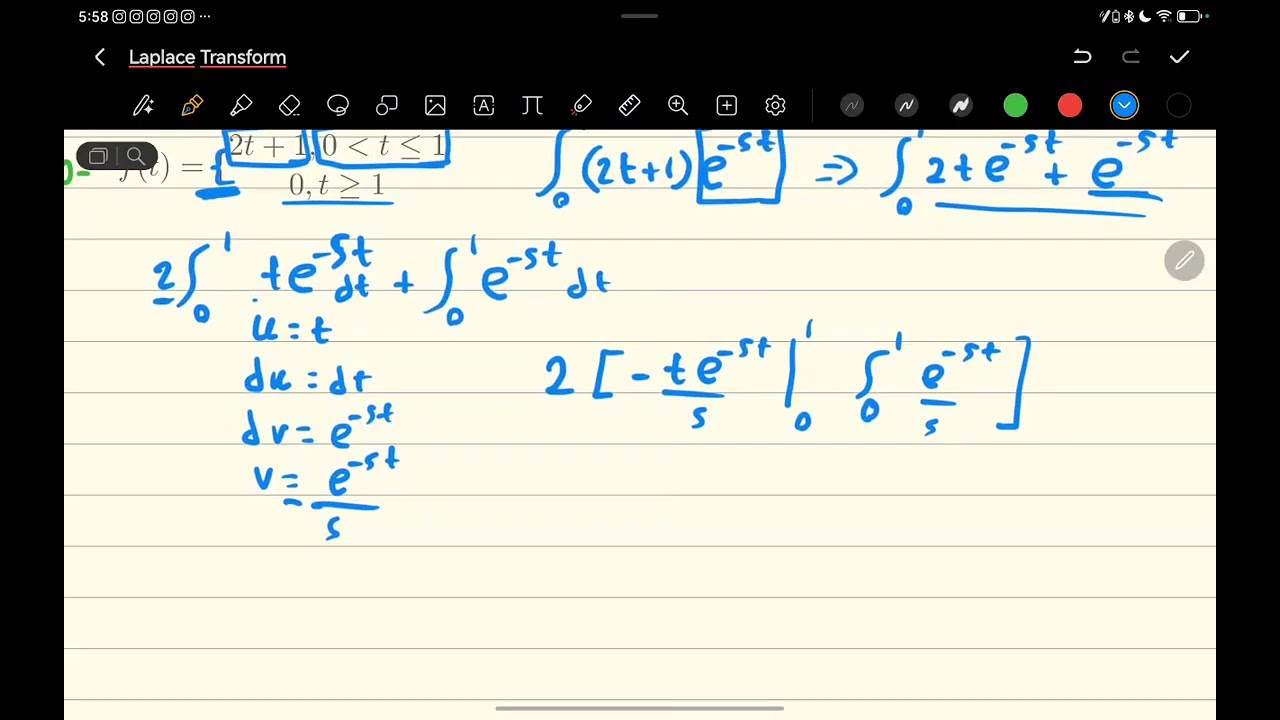 5:58
Laplace Transform
f(t) = { 2t + 1, 0 < t ≤ 1
0, t ≥ 1
∫₀¹ (2t+1) e^{-st} ⇒ ∫₀¹ 2te^{-st} + e^{-st}
2∫₀¹ te^{-st} dt + ∫₀¹ e^{-st} dt
u = t
du = dt
dv = e^{-st}
v = e^{-st}/s
2 [ - te^{-st}/s |₀¹ ∫₀¹ e^{-st}/s ]